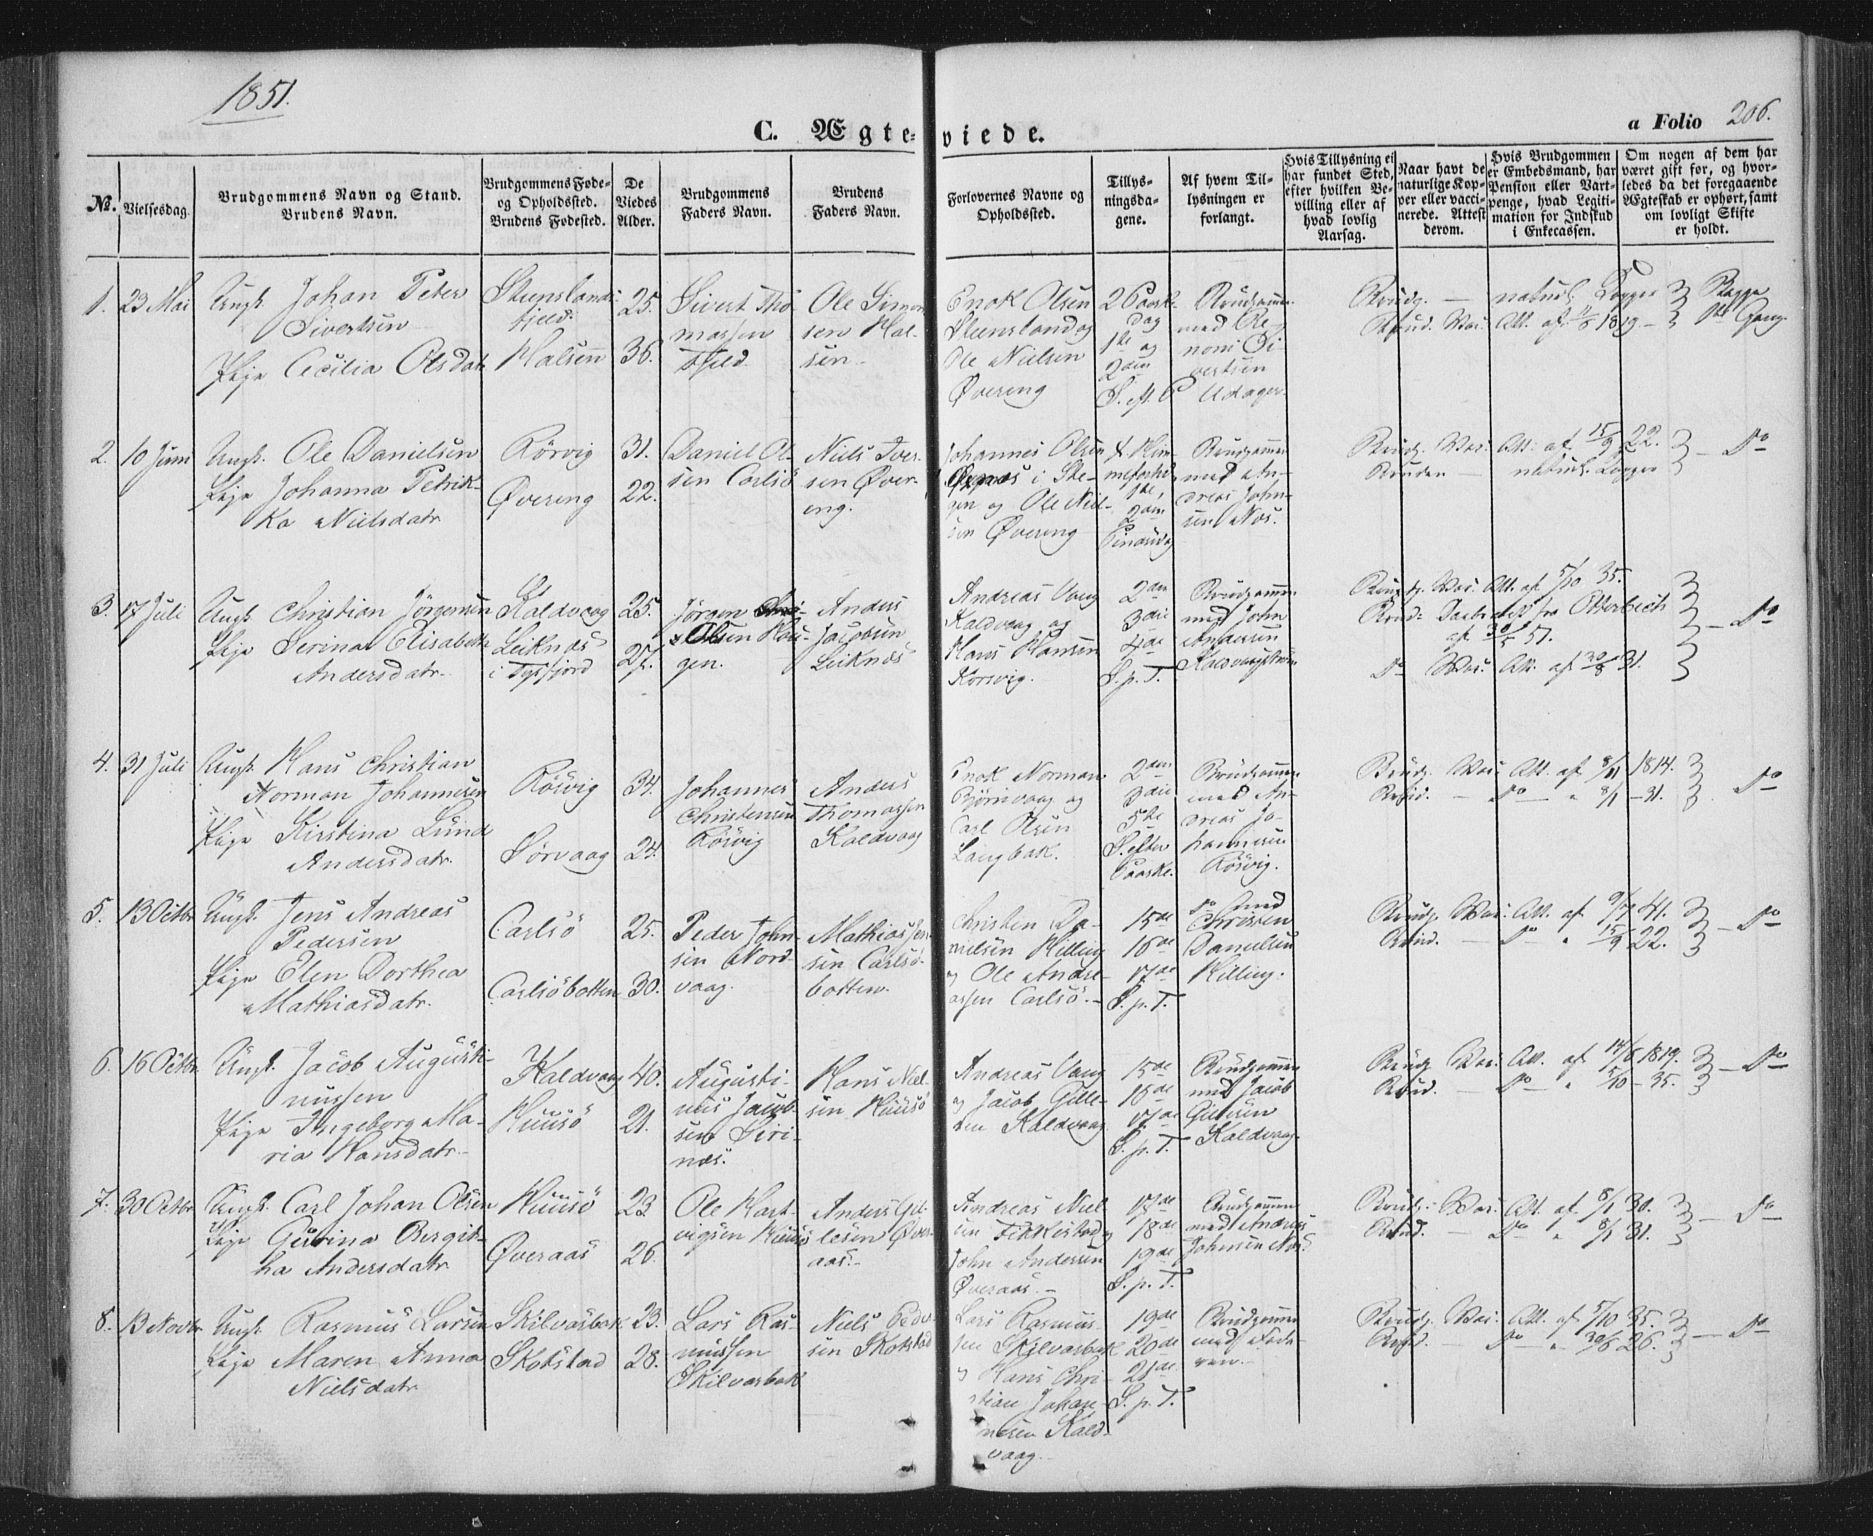 1851.
C. Ægteviede.
a Folio 206.
No.
Vielsesdag.
Brudgommens Navn og Stand.
Brudens Navn.
Brudgommens Føde-
og Opholdssted.
Brudens Fødested.
De
Viedes
Alder.
Brudgommens
Faders Navn.
Brudens
Faders Navn.
Forlovernes Navne og
Opholdssted.
Tillys-
ningsda-
gene.
Af hvem Til-
lysningen er
forlangt.
Hvis Tillysning ei
har fundet Sted,
efter hvilken Be-
villing eller af
hvad lovlig
Aarsag.
Naar havt de
naturlige Kop-
per eller vacci-
nerede. Attest
derom.
Hvis Brudgommen
er Embedsmand, har
Pension eller Vart-
penge, hvad Legiti-
mation for Indskud
i Enkecassen.
Om nogen af dem har
været gift før, og hvor-
ledes da det foregaaende
Ægteskab er ophørt, samt
om lovligt Skifte
er holdt.
1. 23 Mai
Ungk. Johan Peter
Sivertsen
Pige Cecilia Olsdatr
Steenslands-
fjeld
Halsen
25.
36.
Sivert Tho-
massen
Fjeld
Ole Simon-
sen Hal-
sen
Enok Olsen
Steensland og
Ole Nielsen
Øvereng
2 Paaske-
dag
1ste og
2den
S. eft. P
Brudgommen
med
Brudg. — naturl. Kopper
Brud. Vac. Att. af 1819
Begge
1ste Gang.
2. 10 Juni
Ungk. Ole Danielsen
Pige Johanna Petrik-
ka Nielsdatr
Rörvig
Øvereng
31.
22.
Daniel Ol-
sen Carlsö
Niels Iver-
sen Øver-
eng.
Johannes Olsen
i Ste-
gen og Ole Niel-
sen Øvereng
2den
Pinsedag
Brudgommen
med An-
dreas John-
sen Nos.
Brudg. Vac. Att. af 15/9 22.
Bruden — naturl. Kopper
Do
3. 17 Juli
Ungk. Christian Jörgensen
Pige Serina Elisabeth
Andersdatr
Kaldvaag
Leiknæs
i Tysfjord
25.
27.
Jörgen
Olsen Hau-
gen.
Anders
Jacobsen
Leiknæs
Andreas Vaag
Kaldvaag og
Hans Hansen
Korsvig.
2den
3die
4de
S. p. T.
Brudgommen
med John
Andersen
Brudg. Vac. Att. af 5/10 35.
Do Vac. Att. af 30/8 31.
Do
4. 31 Juli
Ungk. Hans Christian
Norman Johannesen
Pige Kirstina Lund
Andersdatr.
Rösvig
Sörvaag
34.
24.
Johannes
Christensen
Rösvig
Anders
Thomassen
Kaldvaag
Enok Norman
Bjørnvaag og
Carl Olsen
Langbak.
2den
3die
5te
S. efter
Paaske.
Brudgommen
med An-
dreas Jo-
hannesen
Rösvig.
Brudg. Vac. Att. af 8/11 1814.
Brud. — Do — " 8/1 — 31.
Do
5. 13 Octbr
Ungk. Jens Andreas
Pedersen
Pige Elen Dorthea
Mathiasdatr.
Carlsö
Carlsöbotten
25.
30.
Peder John-
sen Nord-
vaag.
Mathias Jen-
sen Carlsö-
botten.
Christen Da-
nielsen Helling
og Ole Andre-
assen Carlsö.
15de
16de
17de
S. p. T.
Do med
Christen
Danielsen
Helling.
Brudg. Vac. Att. af 9/7 41.
Brud. — Do " 15/9 22.
Do
6. 16 Octbr
Ungk. Jacob Augusti-
nussen
Pige Ingeborg Ma-
ria Hansdatr.
Kaldvaag
Huusö
40.
21.
Augusti-
nus Jacob-
sen
Hans Niel-
sen Huusö
Andreas Vaag
og Jacob Gille-
sen Kaldvaag
15de
16de
17de
S. p. T.
Brudgommen
med Jacob
Gillesen
Kaldvaag.
Brudg. Vac. Att. af 14/6 1819.
Brud. — Do — " 5/10 — 35.
Do
7. 30 Octbr
Ungk. Carl Johan Olsen
Pige Gurina Bergit-
ha Andersdatr
Huusö
Øveraas
23
26.
Ole Hart-
vigsen Huusö
Anders Gil-
lesen Øver-
aas.
Andreas Niel-
sen
John Andersen
Øveraas.
17de
18de
19de
S. p. T.
Brudgommen
med Andreas
Johnsen Nos.
Brudg. Vac. Att. af 8/1 30.
Brud. — Do " 8/1 31.
Do
8. 13 Novbr
Ungk. Rasmus Larsen
Pige Maren Anna
Nielsdatr
Skilvasbak
Skotstad
23.
28.
Lars Ras-
mussen
Skilvasbak
Niels Peder-
sen Skotstad
Lars Rasmus-
sen Skilvasbak
og Hans Chri-
stian Johan-
nesen Kald-
vaag.
19de
20de
21de
S. p. T.
Brudgommen
med Fade-
ren.
Brudg. Vac. Att. af 5/10 35.
Brud. — Do " 30/6 26.
Do